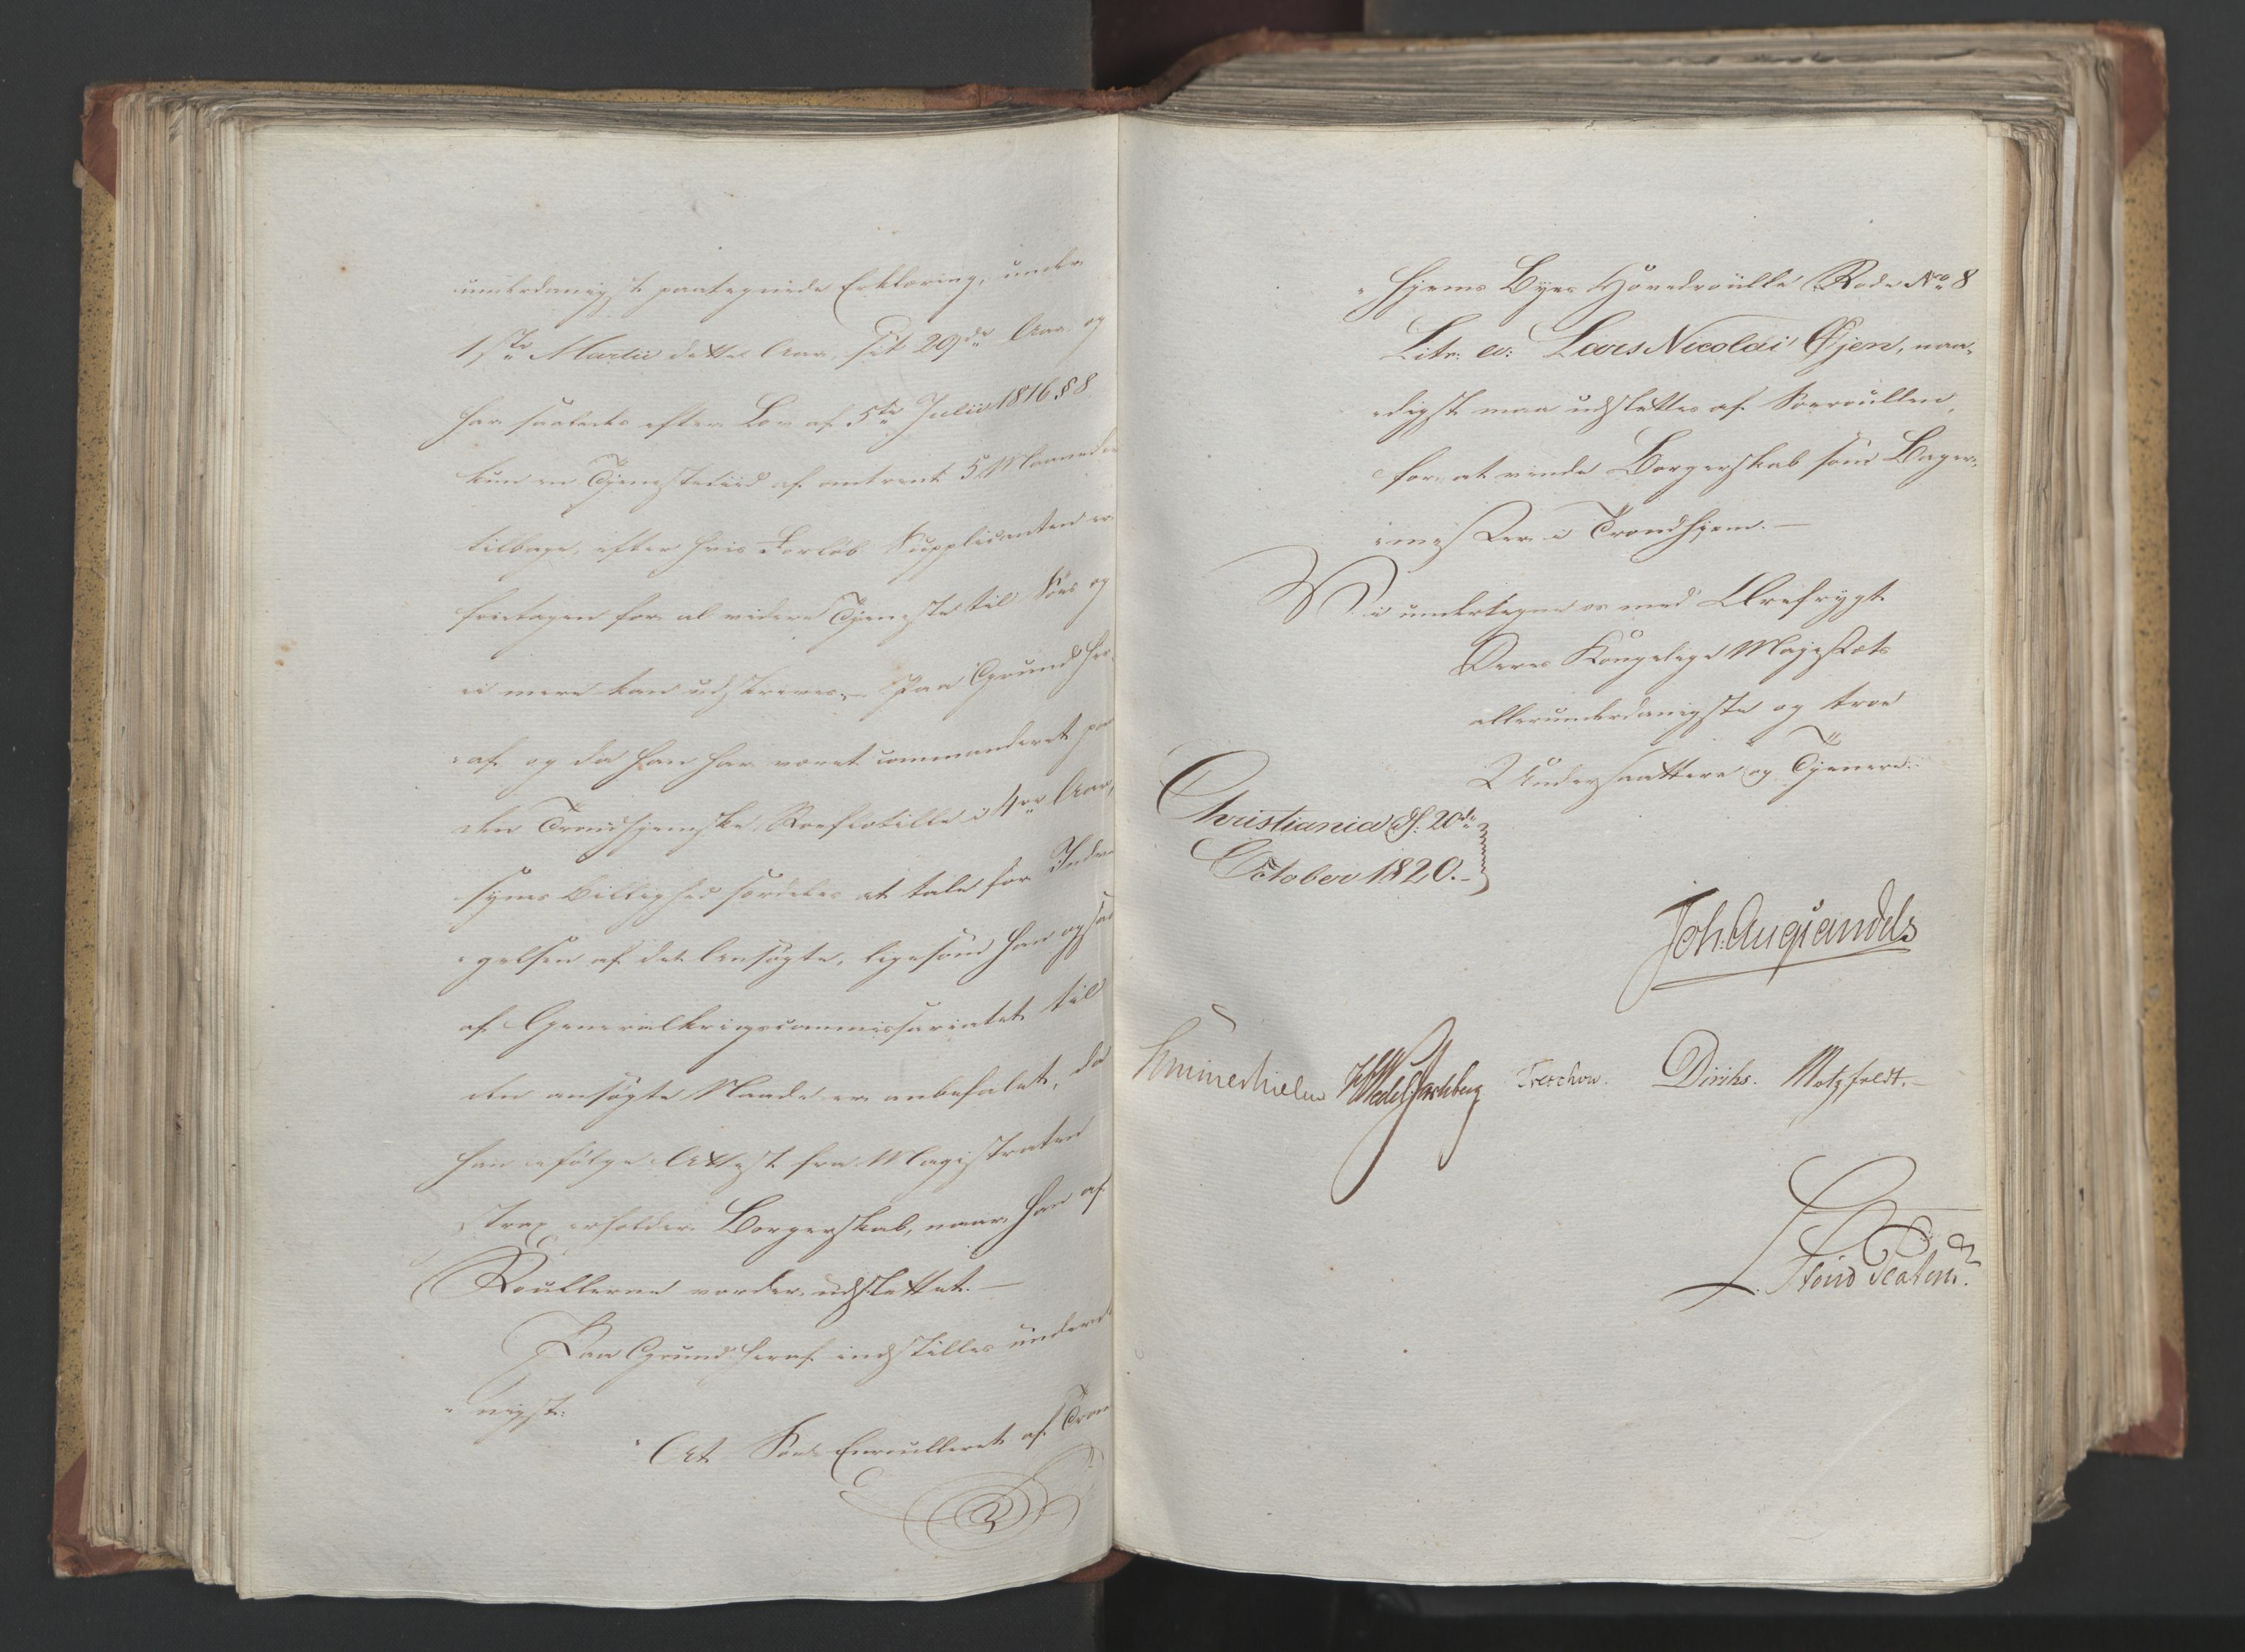 underdanigst paategnede Erklæring, under
1ste Martii dette Aar, sit 29de Aar og
har saaledes efter Lov af 5te Julii 1816 § 8
kun en Tjenestetiid af omtrent 5 Maaneder
tilbage, efter hvis Forløb Supplicanten er
frietagen for al videre Tjeneste til Søes og
ei mere kan udskrives. Paa Grund her-
af og da han har været commanderet paa
den Trondhjemske Roeflotille i 4re Aar,
synes Billighed særdeles at tale for Indvil-
gelsen af det Ansøgte, ligesom han ogsaa
af Generalkrigscommissariatet til
den ansøgte Naade er anbefalet, da
han ifølge Attest fra Magistraten
strax erholder Borgerskab, naar han af
Roullerne vorder udslettet. —
Paa Grund heraf indstilles underda-
nigst:
At Søe-Enroulleret af Trond-
hjems Byes Hovedroulle Rode No 8
Litr. a: Lars Nicolai Øjen, naa-
digst maa udslettes af Søeroullen,
for at vinde Borgerskab som Bager-
mester i Trondhjem. —
Vi undertegne os med Ærefrygt
Deres Kongelige Majestæts
allerunderdanigste og troe
Undersaattere og Tjenere.
Christiania d. 20de
October 1820. —
Joh. Aug. Sandels
Sommerhielm HWedel Jarlsberg Treschow. Diriks. Motzfeldt. —